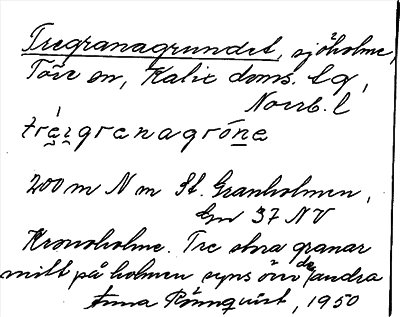 Tregranagrundet, sjöholme,
Töre sn, Kalix doms. lg,
Norrb. l
200 m N om St. Granholmen,
37 NV
Kronoholme. Tre stora granar
mitt på holmen syns över de andra
Anna Rönnqvist, 1950